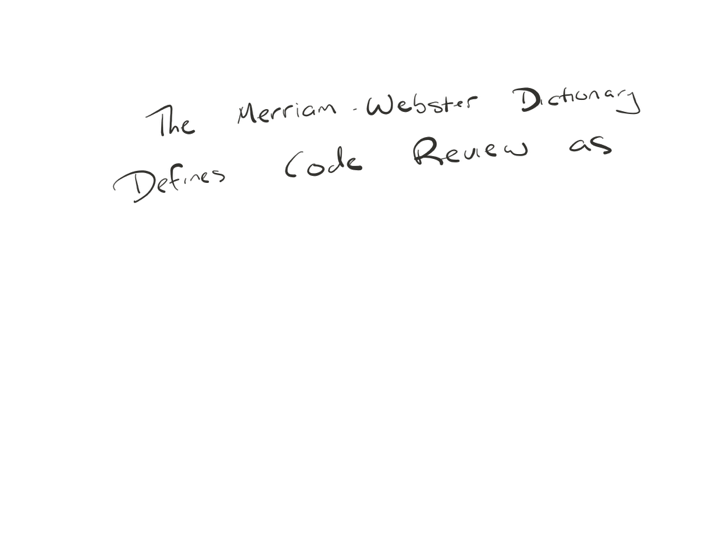 The Merriam-Webster Dictionary
Defines Code Review as